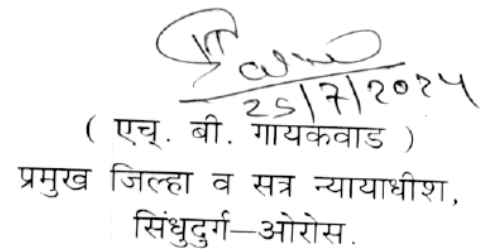 25/7/2024
( एच्. बी. गायकवाड )
प्रमुख जिल्हा व सत्र न्यायाधीश,
सिंधुदुर्ग–ओरोस.